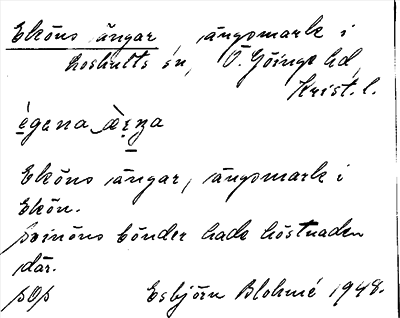 Eköns ängar, ängsmark i
Loshults sn, Ö. Göinge hd,
Krist. l.
Eköns ängar, ängsmark i
Ekön.
Svinöns bönder hade höstnaden
där.
Esbjörn Blohmé 1948.